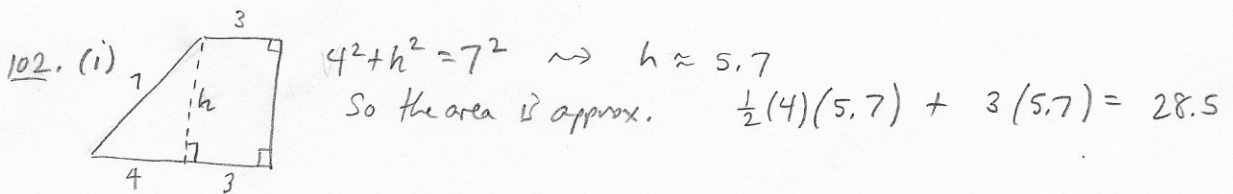 3
102. (i) 7 4² + h² = 7² ⇝ h ≈ 5.7
h So the area is approx. ½(4)(5.7) + 3(5.7) = 28.5
4 3